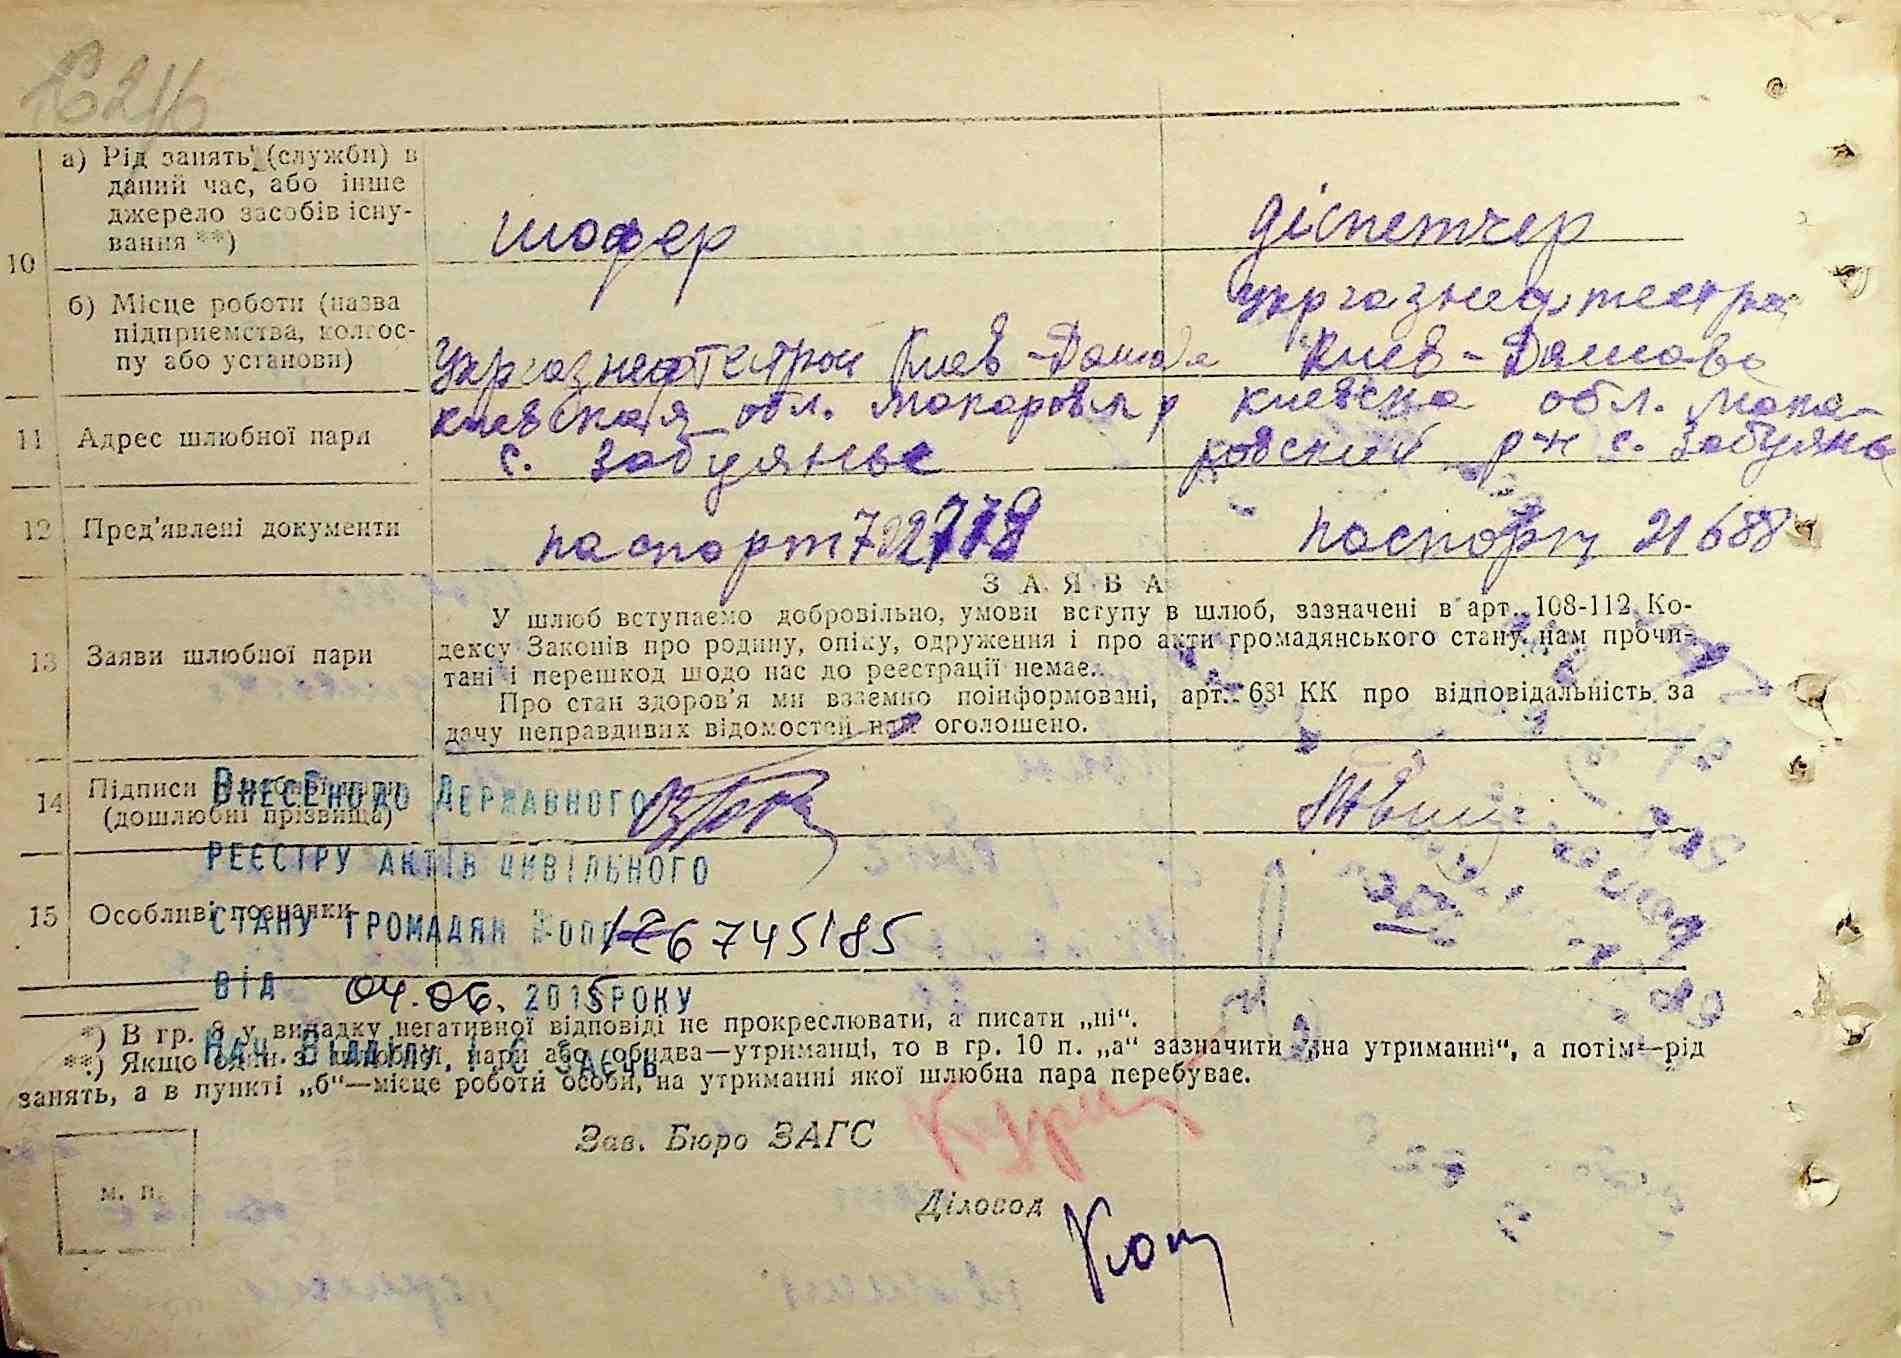 10
а) Рід занять (служби) в
даний час, або інше
джерело засобів існу-
вання **)
шофер
діспетчер
б) Місце роботи (назва
підприемства, колгос-
пу або установи)
Укргазнефтестрой Киев-Дашава
Укргазнефтестрой
Киев-Дашава
11
Адрес шлюбної пари
Киевская обл. Макаровск р
с. Забуянье
Киевска обл. Мака-
ровский р-н с. Забуянь
12
Пред'явлені документи
паспорт
паспорт 21688
13
Заяви шлюбної пари
ЗАЯВА
У шлюб вступаємо добровільно, умови вступу в шлюб, зазначені в арт. 108-112 Ко-
дексу Законів про родину, опіку, одруження і про акти громадянського стану нам прочи-
тані і перешкод щодо нас до реестрації немае.
Про стан здоров'я ми вземно поінформовані, арт. 63¹ КК про відповідальність за
дачу неправдивих відомостей нам оголошено.
14
Підписи шлюбної пари
(дошлюбні прізвища)
Внесено до Державного
реєстру актів цивільного
15
Особливі познаки
стану громадян
6745185
від 04.06.2015 року
*) В гр. 8 у випадку негативної відповіді не прокреслювати, а писати „ні“.
**) Якщо один з шлюбної пари або обидва—утриманці, то в гр. 10 п. „а“ зазначити „на утриманні“, а потім—рід
занять, а в пункті „б“—місце роботи особи, на утриманні якої шлюбна пара перебувае.
Нач. Відділу І.С. Заєць
Зав. Бюро ЗАГС
м. п.
Діловод